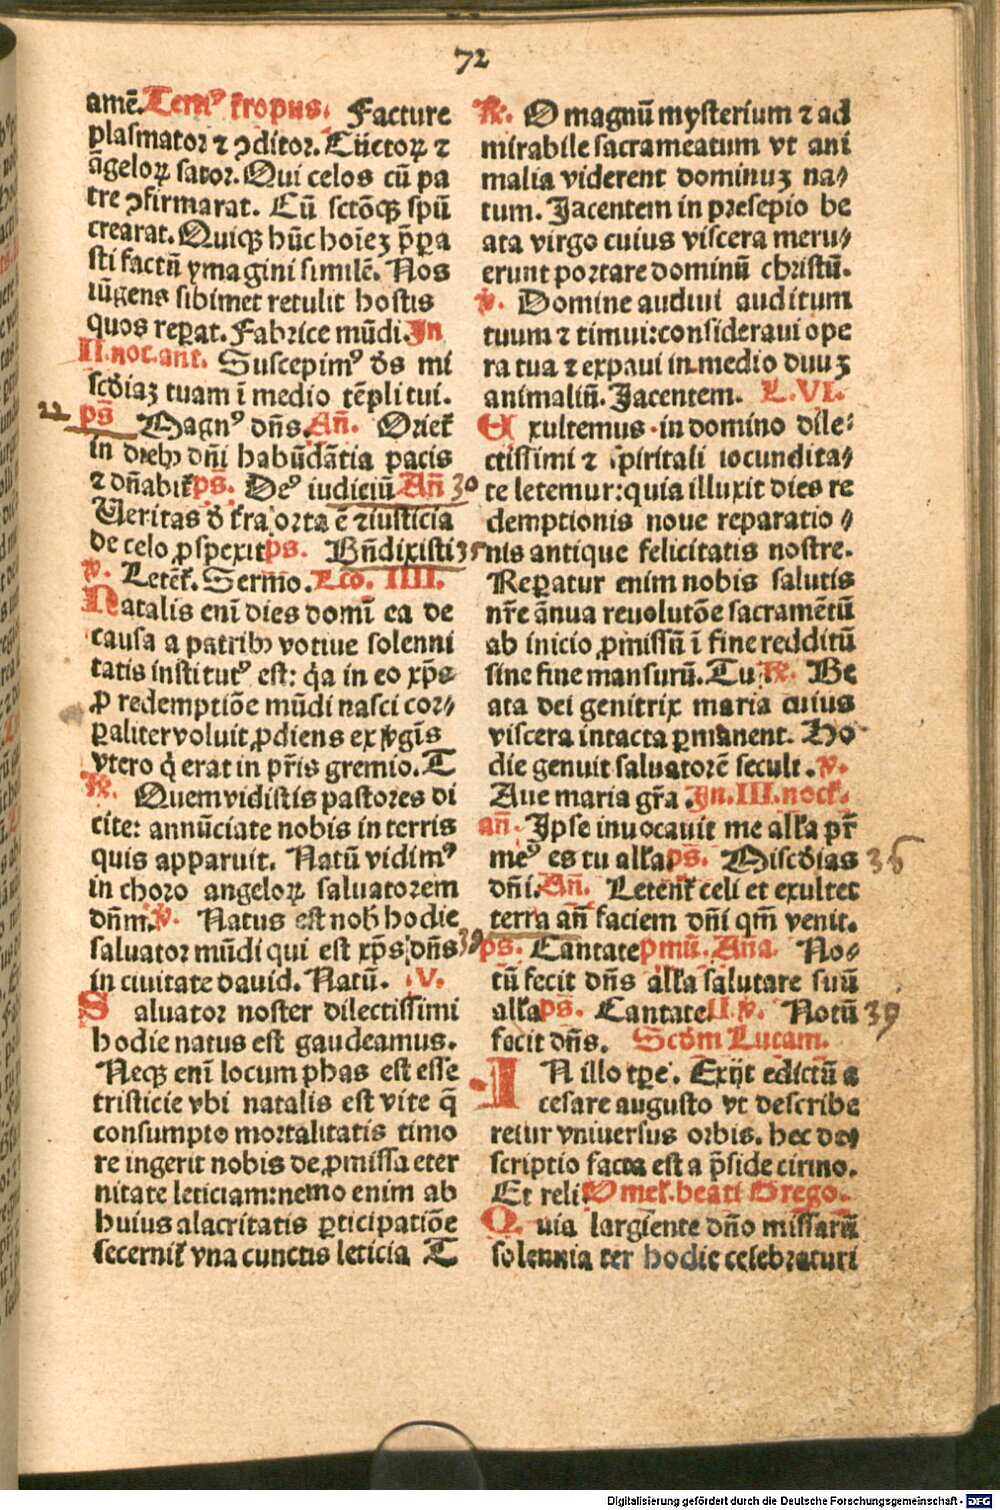 72
amē. Temꝰ t̄ropus. Facture
plasmator ⁊ ꝯditor. Cūctoꝝ ⁊
āgeloꝝ sator. Qui celos cū pa
tre ꝯfirmarat. Cū sctōꝗꝫ spū
crearat. Quiqꝫ hūc hoīeꝫ p̄ꝑa
sti factū ymagini similē. Nos
iūgens sibimet retulit hostis
quos reꝑat. Fabrice mūdi. In
II. noc. ant. Suscepimꝰ ds̄ mi
scd̄iaꝫ tuam ī medio tēpli tui.
ps̄ Magnꝰ dn̄s. An̄. Oriet̄
in diebꝰ dn̄i habūdātia pacis
⁊ dn̄abit̄ ps̄. Deꝰ iudiciū An̄ 30
Veritas d̄ t̄ra orta ē ⁊ iusticia
de celo ꝓspexit ps. Bn̄dixisti 35
v̄. Letēt̄. Sermo. Lco. IIII.
Natalis enī dies domī ea de
causa a patribꝰ votiue solenni
tatis institutꝰ est: q̇a in eo xp̄s
ꝓ redemptiōe mūdi nasci cor⸗
ꝑaliter voluit ꝓdiens ex v̄gīs
vtero q̇ erat in pr̄is gremio. T
R̄. Quem vidistis pastores di
cite: annūciate nobis in terris
quis apparuit. Natū vidimꝰ
in choro angeloꝝ saluatorem
dn̄m. v̄. Natus est nob̄ hodie
saluator mūdi qui est xp̄s dn̄s
in ciuitate dauid. Natū. V.
Saluator noster dilectissimi
hodie natus est gaudeamus.
Neqꝫ enī locum phas est esse
tristicie vbi natalis est vite q̄
consumpto mortalitatis timo
re ingerit nobis de ꝓmissa eter
nitate leticiam: nemo enim ab
huius alacritatis ꝑticipatiōe
secernit̄ vna cunctis leticia T
R̄. O magnū mysterium ⁊ ad
mirabile sacrameatum vt ani
malia viderent dominuꝫ na⸗
tum. Jacentem in presepio be
ata virgo cuius viscera meru⸗
erunt portare dominū christū.
v̄. Domine audiui auditum
tuum ⁊ timui: consideraui ope
ra tua ⁊ expaui in medio duuꝫ
animaliū. Jacentem. L. VI.
Exultemus in domino dile⸗
ctissimi ⁊ spiritali iocundita⸗
te letemur: quia illuxit dies re
demptionis noue reparatio⸗
nis antique felicitatis nostre.
Reꝑatur enim nobis salutis
nr̄e ānua reuolutōe sacramētū
ab inicio ꝓmissū ī fine redditū
sine fine mansurū. Tu R̄. Be
ata dei genitrix maria cuius
viscera intacta ꝑmanent. Ho
die genuit saluatorē seculi. v̄.
Aue maria gr̄a. In. III. noct̄.
an̄. Ipse inuocauit me alła pr̄
meꝰ es tu alła ps̄. Miscd̄ias 36
dn̄i. An̄. Letent̄ celi et exultet
terra an̄ faciem dn̄i qm̄ venit.
39 ps. Cantate pmū. Ana. No⸗
tū fecit dn̄s alła salutare suū
alła ps̄. Cantate. II. v̄. Notū 39
fecit dn̄s. Scd̄m Lucam.
IN illo tꝑe. Exijt edictū a
cesare augusto vt describe
retur vniuersus orbis. hec de⸗
scriptio facta est a p̄side cirino.
Et reli. Omel̄. beati Grego.
Quia largiente dn̄o missarū
solennia ter hodie celebraturi
Digitalisierung gefördert durch die Deutsche Forschungsgemeinschaft - DFG